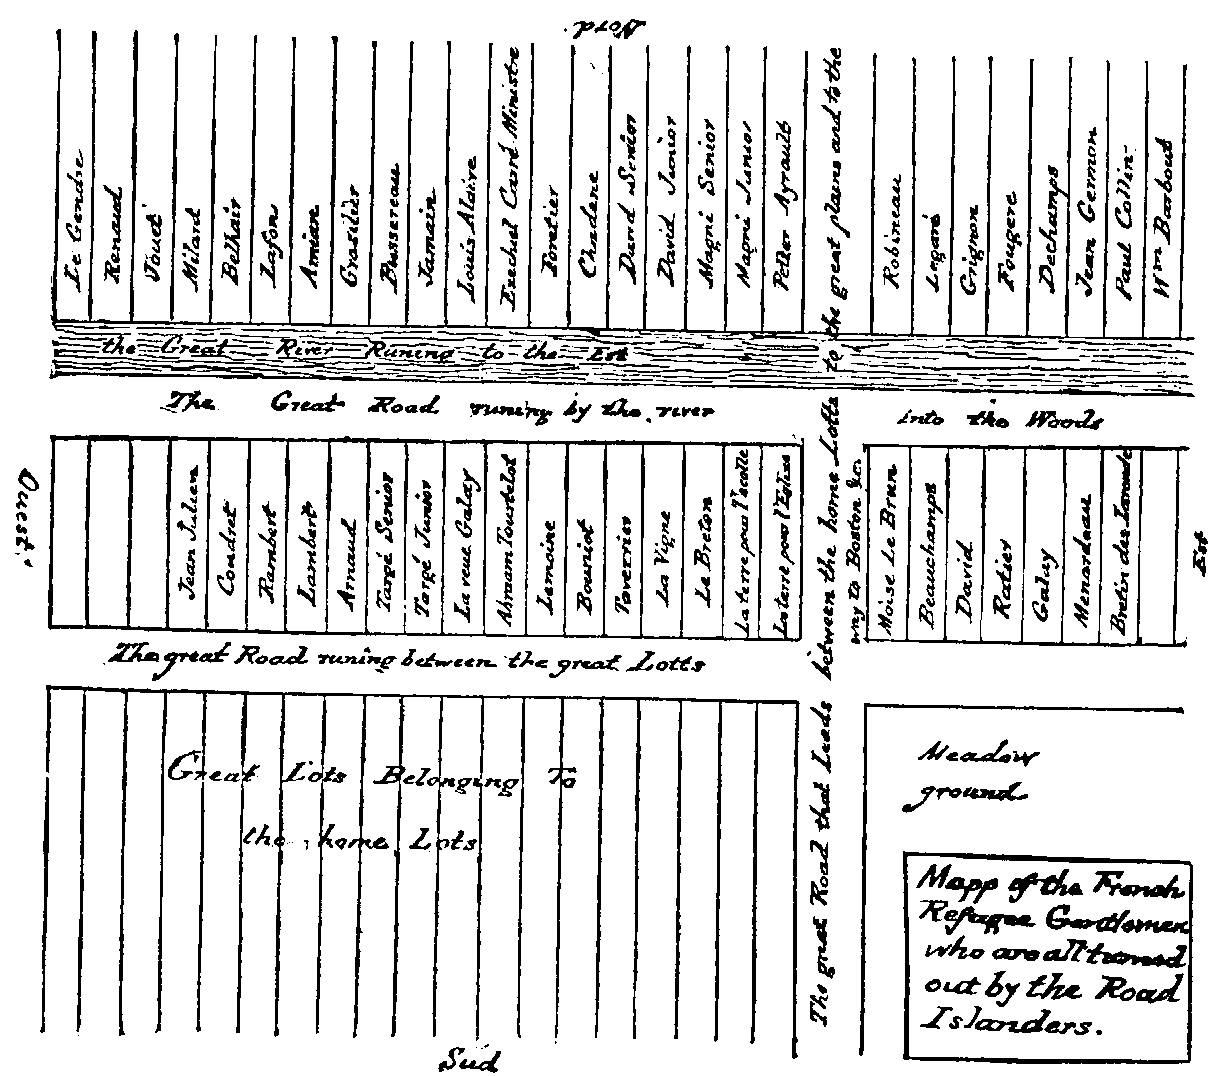 Nord.
Le Gendre
Renaud
Jouet
Milard
Belhair
Lafon
Amian
Grasilier
Bussereau
Jamain
Louis Alaire
Ezechiel Carré Ministre
Foretier
Chadene
David Senior
David Junior
Magni Senior
Magni Junior
Petter Ayrault
Robineau
Legaré
Grignon
Fougere
Dechamps
Jean Germon
Paul Collin-
Wm Barbout
the Great River Runing to the Est
The Great Road runing by the river into the Woods
Ouest.
Jean Julien
Coudret
Rambert
Lambert
Arnaud
Targé Senior
Targé Junior
La veue Galay
Abraam Tourtelot
Lemoine
Bouniot
Taverrier
La Vigne
Le Breton
La terre pour l'ecolle
La terre pour l'Eglise
Moise Le Brun
Beauchamps
David
Ratier
Galay
Menardeau
Bretin des
Est
The great Road runing between the great Lotts
The great Road that Leeds between the home Lotts to the great plains and to the
way to Boston &c.
Great Lots Belonging To
the home Lots
Meadow
ground
Mapp of the French
Refugee Gentlemen
who are all turned
out by the Road
Islanders.
Sud